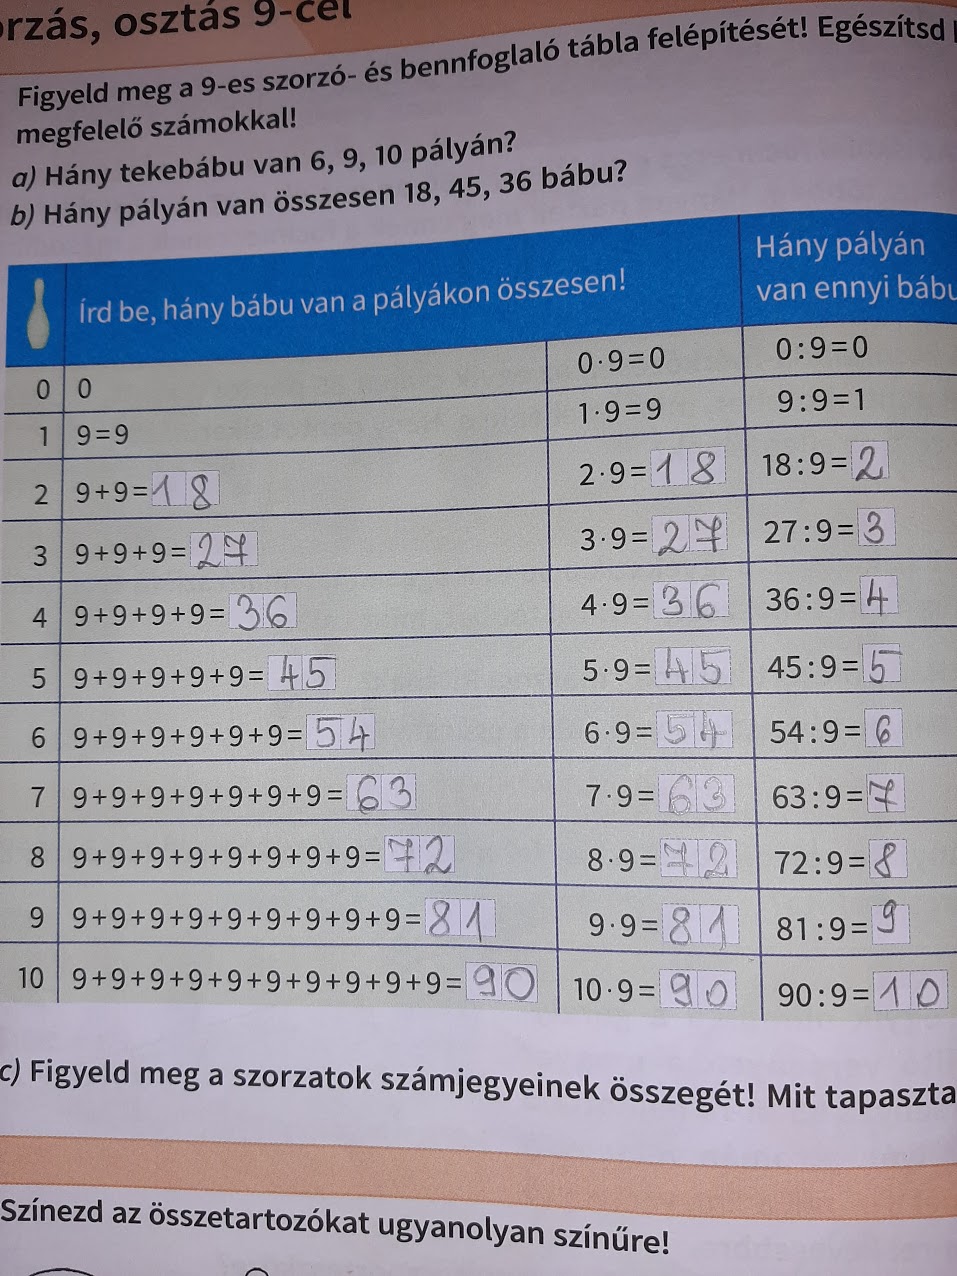 orzás, osztás 9-cel
Figyeld meg a 9-es szorzó- és bennfoglaló tábla felépítését! Egészítsd
megfelelő számokkal!
a) Hány tekebábu van 6, 9, 10 pályán?
b) Hány pályán van összesen 18, 45, 36 bábu?
Írd be, hány bábu van a pályákon összesen!
Hány pályán
van ennyi bábu
0 0 0·9=0 0:9=0
1 9=9 1·9=9 9:9=1
2 9+9=18 2·9=18 18:9=2
3 9+9+9=27 3·9=27 27:9=3
4 9+9+9+9=36 4·9=36 36:9=4
5 9+9+9+9+9=45 5·9=45 45:9=5
6 9+9+9+9+9+9=54 6·9=54 54:9=6
7 9+9+9+9+9+9+9=63 7·9=63 63:9=7
8 9+9+9+9+9+9+9+9=72 8·9=72 72:9=8
9 9+9+9+9+9+9+9+9+9=81 9·9=81 81:9=9
10 9+9+9+9+9+9+9+9+9+9=90 10·9=90 90:9=10
c) Figyeld meg a szorzatok számjegyeinek összegét! Mit tapaszta
Színezd az összetartozókat ugyanolyan színűre!